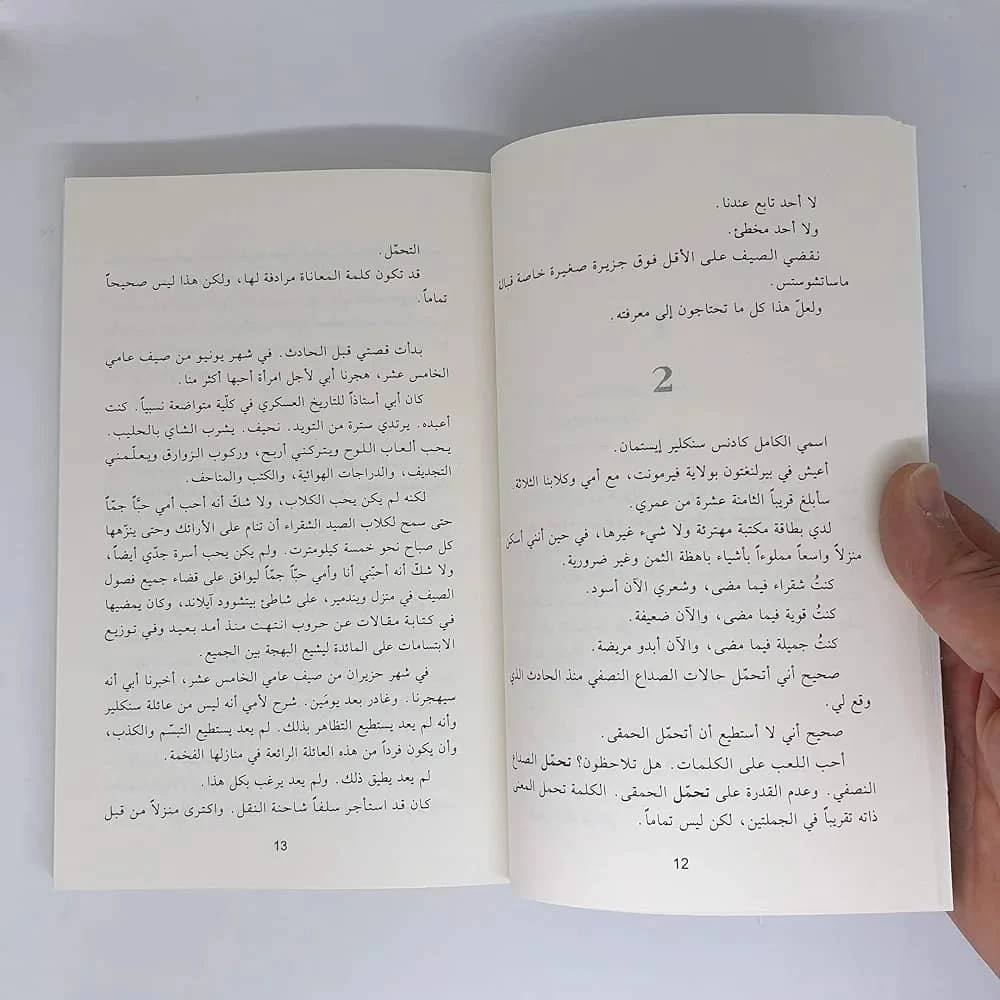 لا أحد تابع عندنا.
ولا أحد مخطئ.
نقضي الصيف على الأقل فوق جزيرة صغيرة خاصة قبالة
ماساتشوستس.
ولعلّ هذا كل ما تحتاجون إلى معرفته.
2
اسمي الكامل كادنس سنكلير إيستمان.
أعيش في بيرلنغتون بولاية فيرمونت، مع أمي وكلابنا الثلاثة.
سأبلغ قريباً الثامنة عشرة من عمري.
لدي بطاقة مكتبة مهترئة ولا شيء غيرها، في حين أنني أسكن
منزلاً واسعاً مملوءاً بأشياء باهظة الثمن وغير ضرورية.
كنتُ شقراء فيما مضى، وشعري الآن أسود.
كنتُ قوية فيما مضى، والآن ضعيفة.
كنتُ جميلة فيما مضى، والآن أبدو مريضة.
صحيح أني أتحمّل حالات الصداع النصفي منذ الحادث الذي
وقع لي.
صحيح أني لا أستطيع أن أتحمّل الحمقى.
أحب اللعب على الكلمات. هل تلاحظون؟ تحمّل الصداع
النصفي. وعدم القدرة على تحمّل الحمقى. الكلمة تحمل المعنى
ذاته تقريباً في الجملتين، لكن ليس تماماً.
12
التحمّل.
قد تكون كلمة المعاناة مرادفة لها، ولكن هذا ليس صحيحاً
تماماً.
بدأت قصتي قبل الحادث. في شهر يونيو من صيف عامي
الخامس عشر، هجرنا أبي لأجل امرأة أحبها أكثر منا.
كان أبي أستاذاً للتاريخ العسكري في كلّية متواضعة نسبياً. كنت
أعبده. يرتدي سترة من التويد. نحيف. يشرب الشاي بالحليب.
يحب ألعاب اللوح ويتركني أربح، وركوب الزوارق ويعلّمني
التجديف، والدراجات الهوائية، والكتب والمتاحف.
لكنه لم يكن يحب الكلاب، ولا شكّ أنه أحب أمي حبَّاً جمّاً
حتى سمح لكلاب الصيد الشقراء أن تنام على الأرائك وحتى ينزّهها
كل صباح نحو خمسة كيلومترت. ولم يكن يحب أسرة جدّي أيضاً،
ولا شكّ أنه أحبّني أنا وأمي حبّاً جمّاً ليوافق على قضاء جميع فصول
الصيف في منزل ويندمير، على شاطئ بيتشوود آيلاند، وكان يمضيها
في كتابة مقالات عن حروب انتهت منذ أمد بعيد وفي توزيع
الابتسامات على المائدة ليشيع البهجة بين الجميع.
في شهر حزيران من صيف عامي الخامس عشر، أخبرنا أبي أنه
سيهجرنا. وغادر بعد يومَين. شرح لأمي أنه ليس من عائلة سنكلير
وأنه لم يعد يستطيع التظاهر بذلك. لم يعد يستطيع التبسّم والكذب،
وأن يكون فرداً من هذه العائلة الرائعة في منازلها الفخمة.
لم يعد يطيق ذلك. ولم يعد يرغب بكل هذا.
كان قد استأجر سلفاً شاحنة النقل. واكترى منزلاً من قبل
13